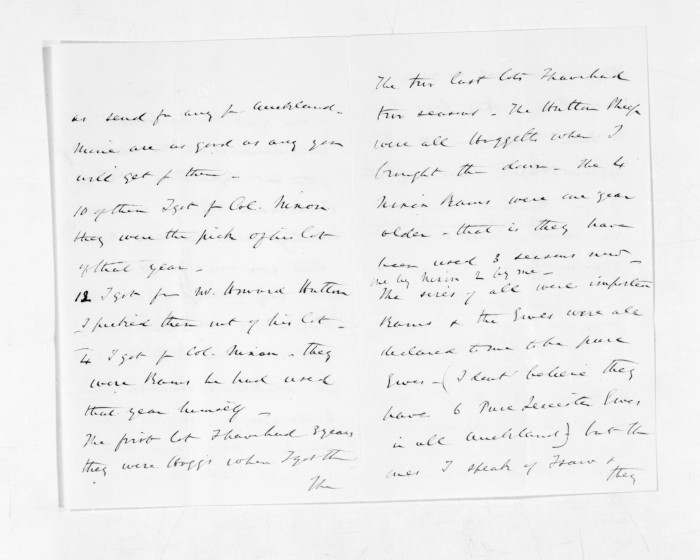 as send for any fr Auckland.
Mine are as good as any you
will get fr them -
10 of them I got fr Col. Nixon
they were the pick of his lot
of that year -
12 I got fm Mr. Howard Hutton
I picked them out of his lot -
4 I got fr Col. Nixon - they
were Rams he had used
that year himself -
The first lot I have had 3 years
they were Hoggs when I got th
The
The two last lots I have had
two seasons - The Hutton Sheep
were all Hoggetts when I
brought thm down - the 4
Nixon Rams were one year
older - that is they have
been used 3 seasons now -
one by Nixon 2 by me -
The sires of all were imported
Rams & the Ewes were all
declared to me to be pure
Ewes - (I dont believe they
have 6 Pure Leicester Ewes
in all Auckland) but the
ones I speak of I saw &
they